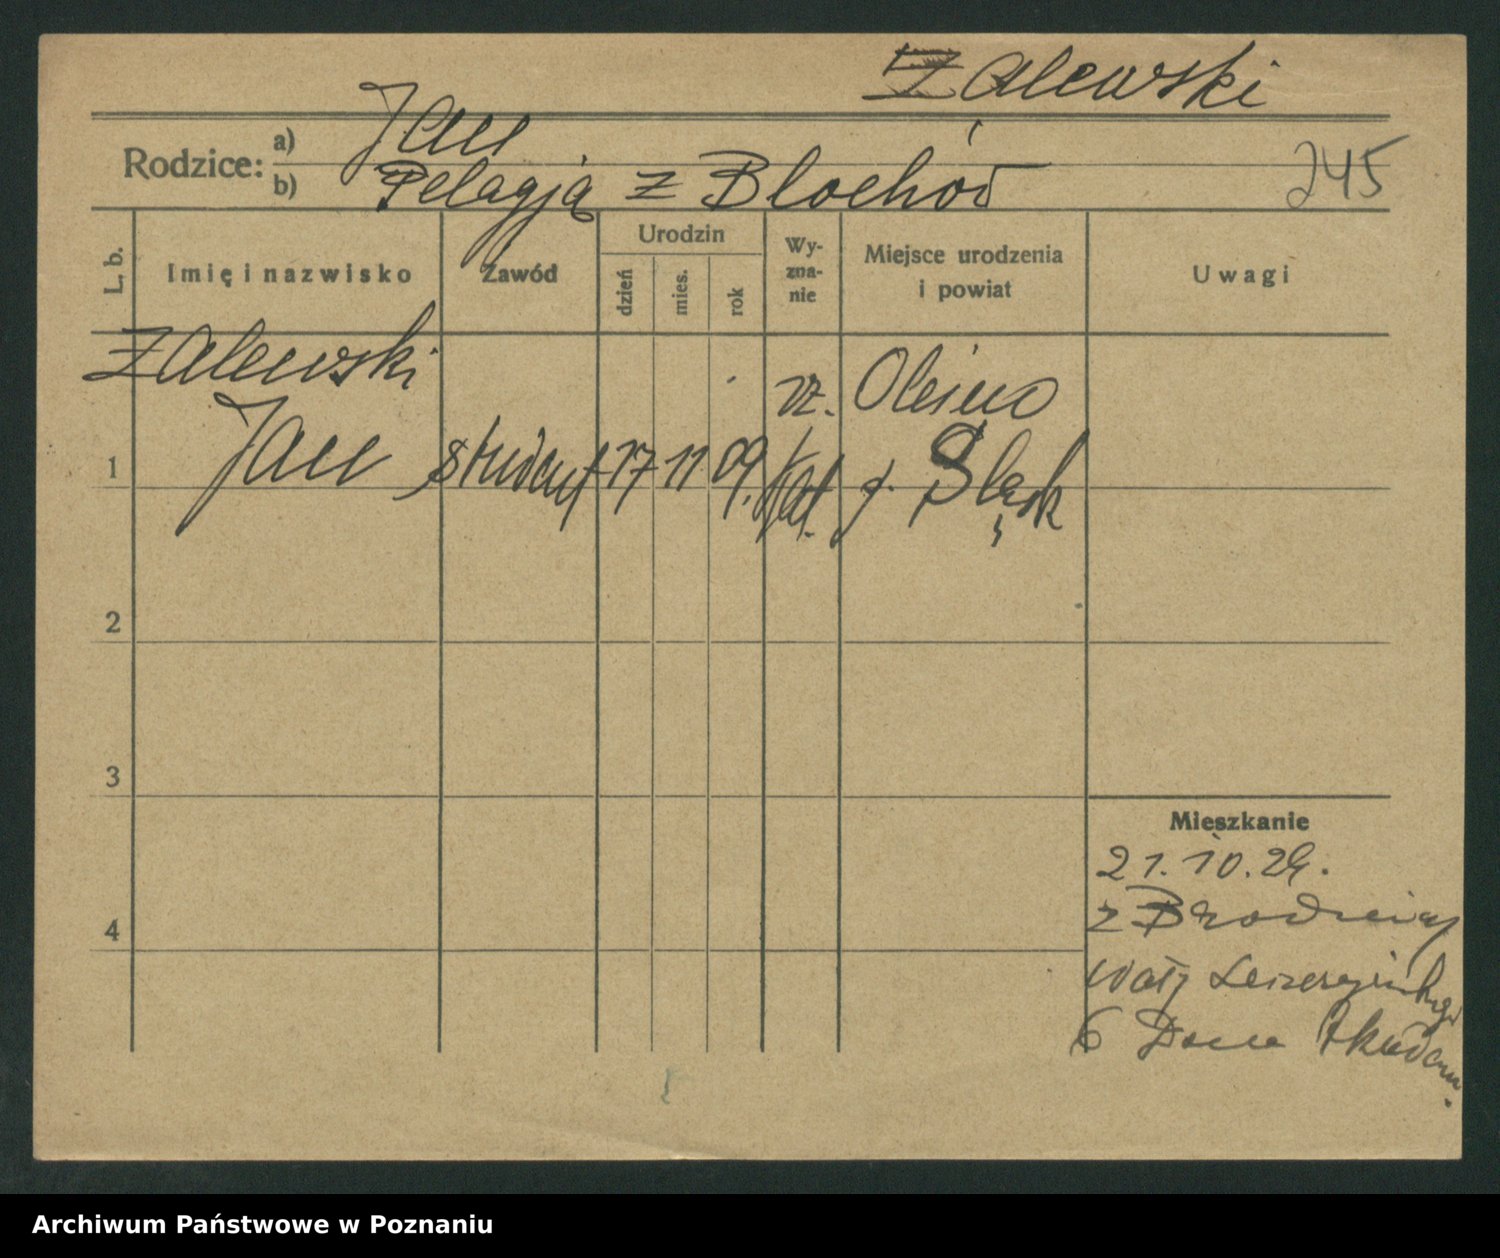 Zalewski
Rodzice: a) Jan
b) Pelagją z Blochów
245
L. b.
Imię i nazwisko
Zawód
Urodzin
dzień
mies.
rok
Wy-
zna-
nie
Miejsce urodzenia
i powiat
Uwagi
Zalewski
1 Jan student 17 11 09. rz. kat. g. Śląsk
2
3
4
Mieszkanie
21.10.29.
z
Wały Leszczyńskiego
6 Dom Akadem.
Archiwum Państwowe w Poznaniu